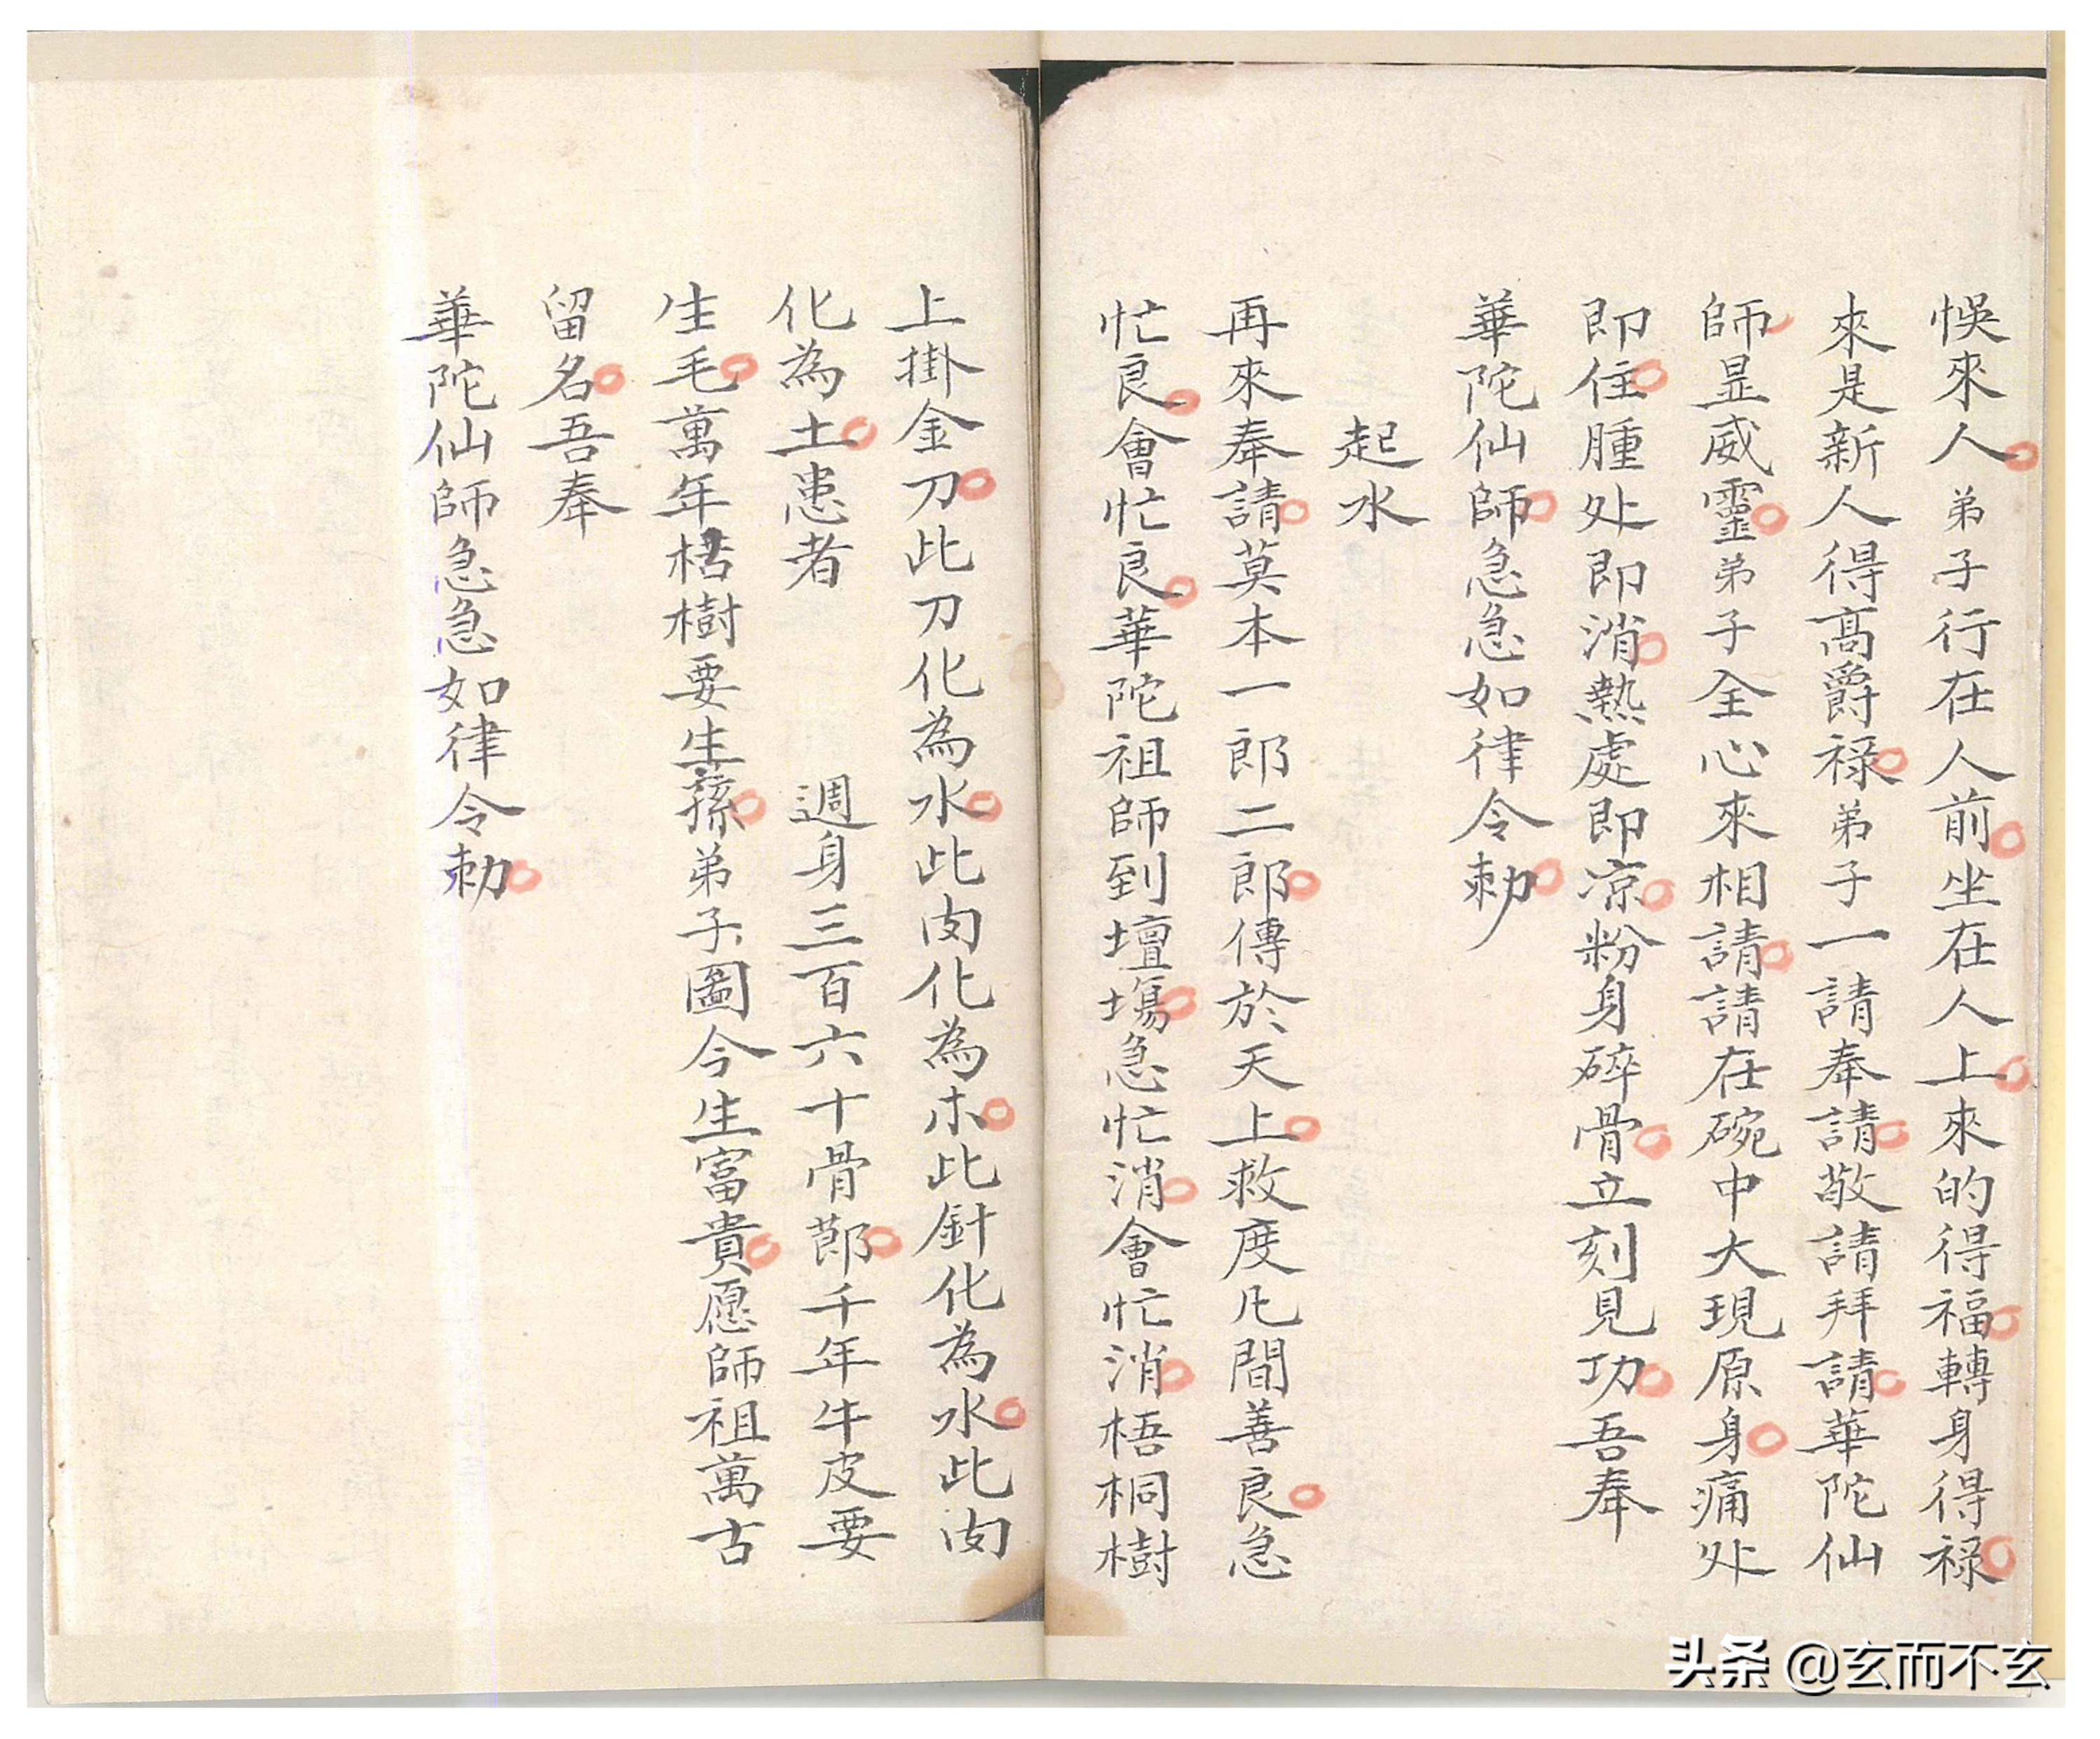 悞來人弟子行在人前坐在人上來的得福轉身得祿
來是新人得高爵祿弟子一請奉請敬請拜請華陀仙
師昱威靈弟子全心來相請請在碗中大現原身痛处
即住腫处即消熱處即凉粉身碎骨立刻見功吾奉
華陀仙師急急如律令勅
起水
再來奉請莫本一郎二郎傳於天上救度凡間善良急
忙良會忙良華陀祖師到壇塲急忙消會忙消梧桐樹
上掛金刀此刀化為水此肉化為木此針化為水此肉
化為土患者　週身三百六十骨節千年牛皮要
生毛萬年枯樹要生蓀弟子圖今生富貴愿師祖萬古
留名吾奉
華陀仙師急急如律令勅
头条 @玄而不玄